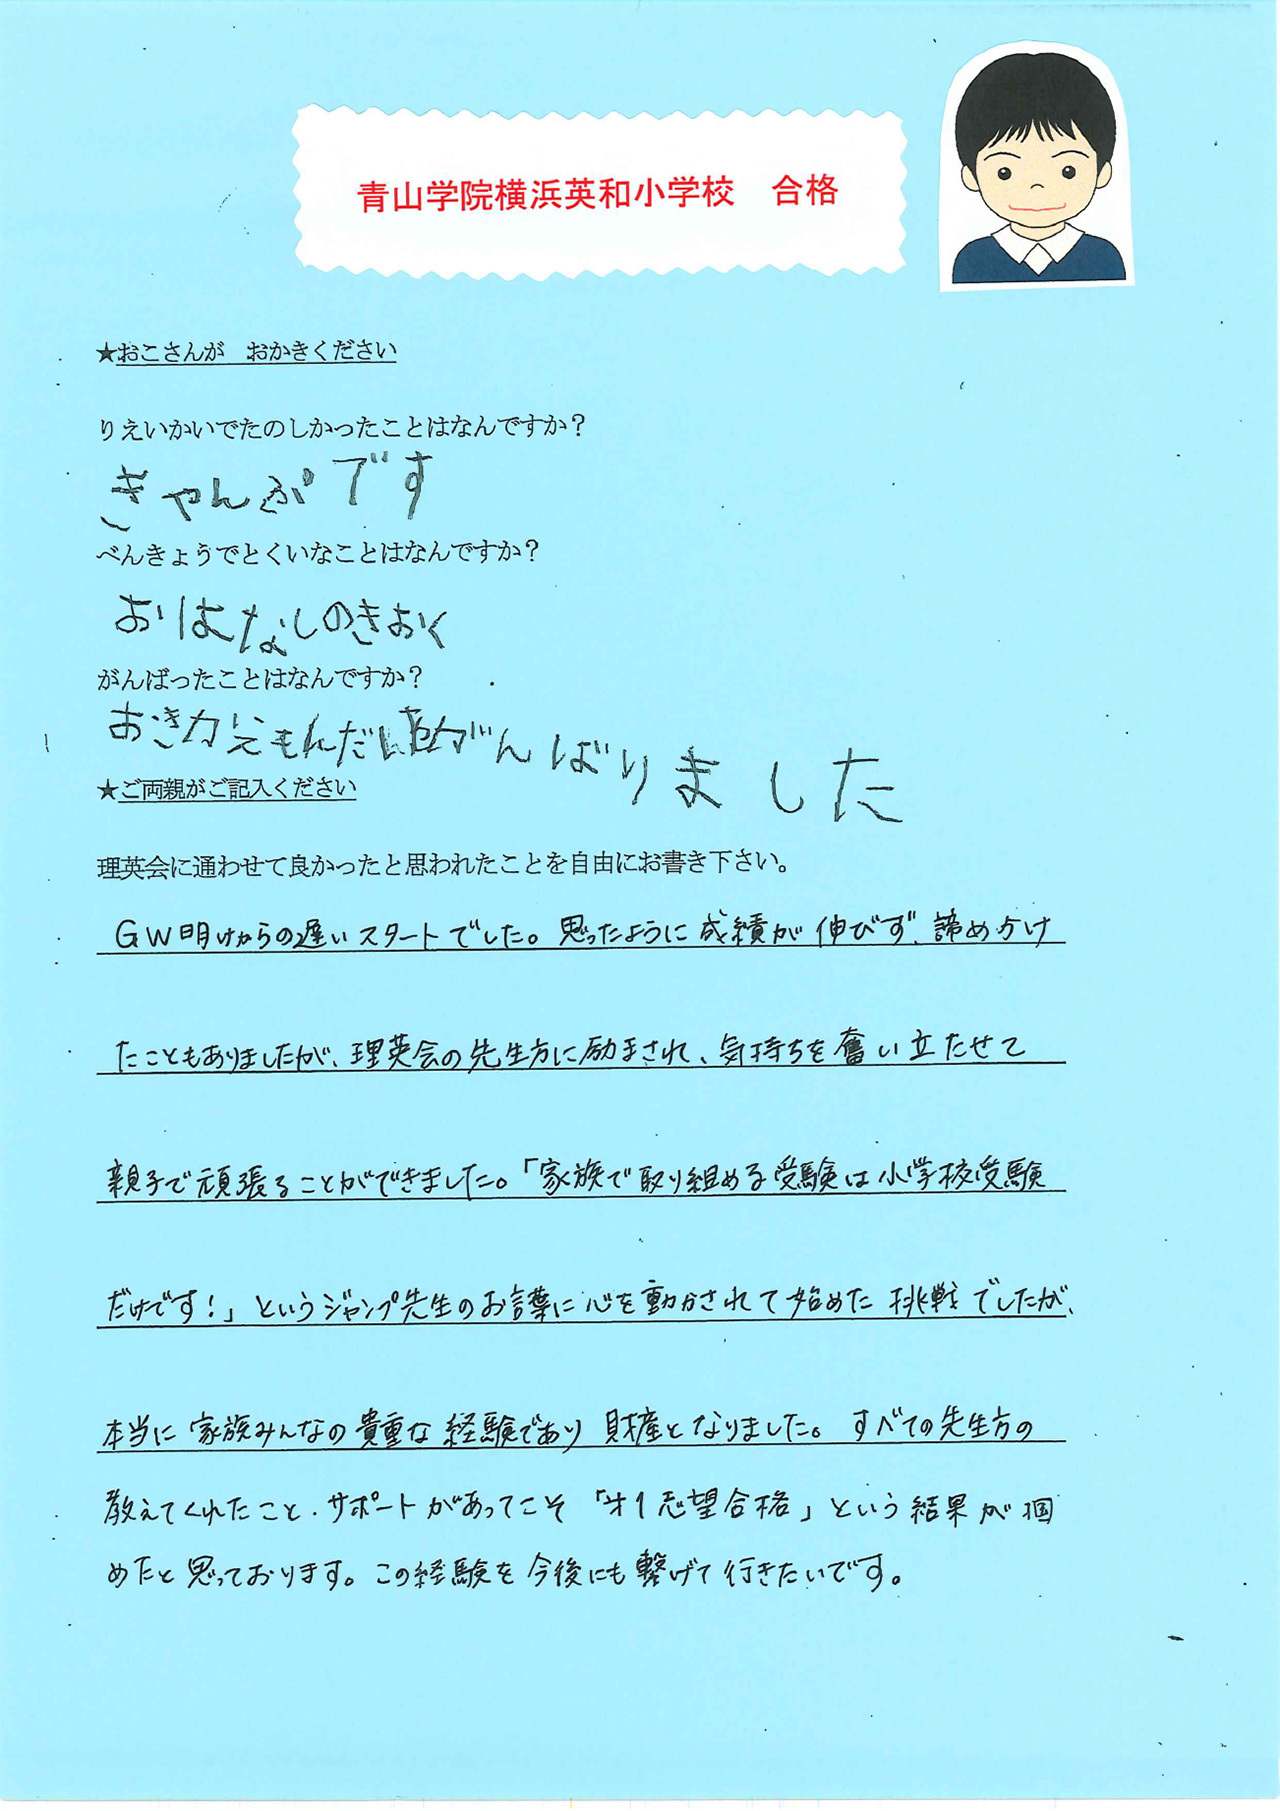 青山学院横浜英和小学校　合格
★おこさんが　おかきください
りえいかいでたのしかったことはなんですか？
きゃんぷです
べんきょうでとくいなことはなんですか？
おはなしのきおく
がんばったことはなんですか？
おきかえもんだい がんばりました
★ご両親がご記入ください
理英会に通わせて良かったと思われたことを自由にお書き下さい。
GW明けからの遅いスタートでした。思ったように成績が伸びず、諦めかけ
たこともありましたが、理英会の先生方に励まされ、気持ちを奮い立たせて
親子で頑張ることができました。「家族で取り組める受験は小学校受験
だけです！」というジャンプ先生のお言葉に心を動かされて始めた挑戦でしたが、
本当に家族みんなの貴重な経験であり財産となりました。すべての先生方の
教えてくれたこと、サポートがあってこそ「才1志望合格」という結果が掴
めたと思っております。この経験を今後にも繋げて行きたいです。